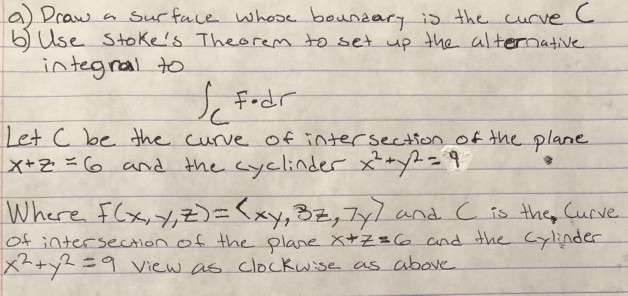 a) Draw a surface whose boundary is the curve C
b) Use Stoke's Theorem to set up the alternative
integral to
∫_C F·dr
Let C be the curve of intersection of the plane
x+z=6 and the cyclinder x²+y²=9
Where F(x,y,z)=<xy,3z,7y> and C is the, Curve
of intersection of the plane x+z=6 and the cylinder
x²+y²=9 view as clockwise as above